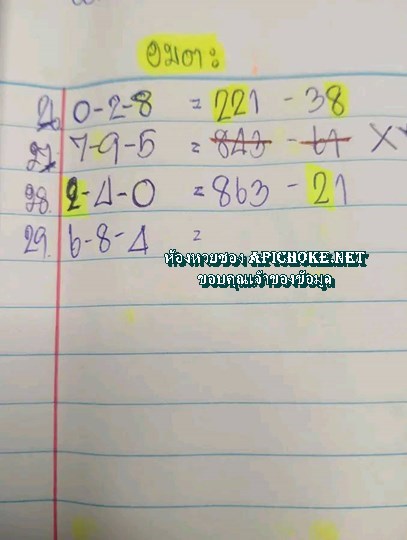 อมตะ
26. 0-2-8 = 221 - 38
27. 7-9-5 = 843 - 61 X
28. 2-4-0 = 863 - 21
29. 6-8-4 =
ห้องหวยซอง APICHOKE.NET
ขอบคุณเจ้าของข้อมูล